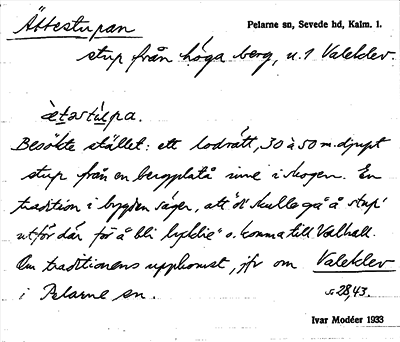 Ättestupan
Pelarne sn, Sevede hd, Kalm. l.
stup från höga berg, u. 1 Valeklev.
ætəstúpa.
Besökte stället: ett lodrätt, 30 à 50 m. djupt
stup från en bergplatå inne i skogen. En
tradition i bygden säger, att "di skulle gå å stup'
utför där för å bli lyklie" o. komma till Valhall.
Om traditionens uppkomst, jfr om Valeklev
i Pelarne sn. s. 28, 43.
Ivar Modéer 1933